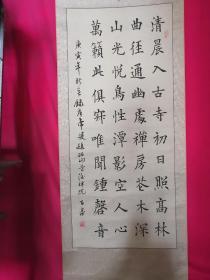 清晨入古寺初日照高林
曲徑通幽處禪房花木深
山光悅鳥性潭影空人心
萬籟此俱寂唯聞鍾磬音
庚寅年 錄唐常建題破山寺後禪院